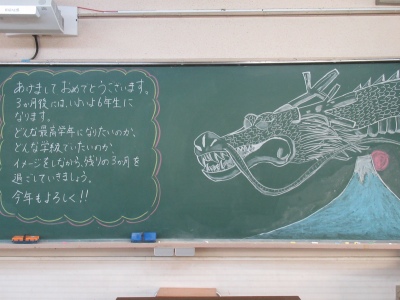 あけまして おめでとうございます。
3か月後には、いよいよ6年生に
なります。
どんな最高学年になりたいのか、
どんな学級でいたいのか、
イメージをしながら、残りの3か月を
過ごしていきましょう。
今年もよろしく!!